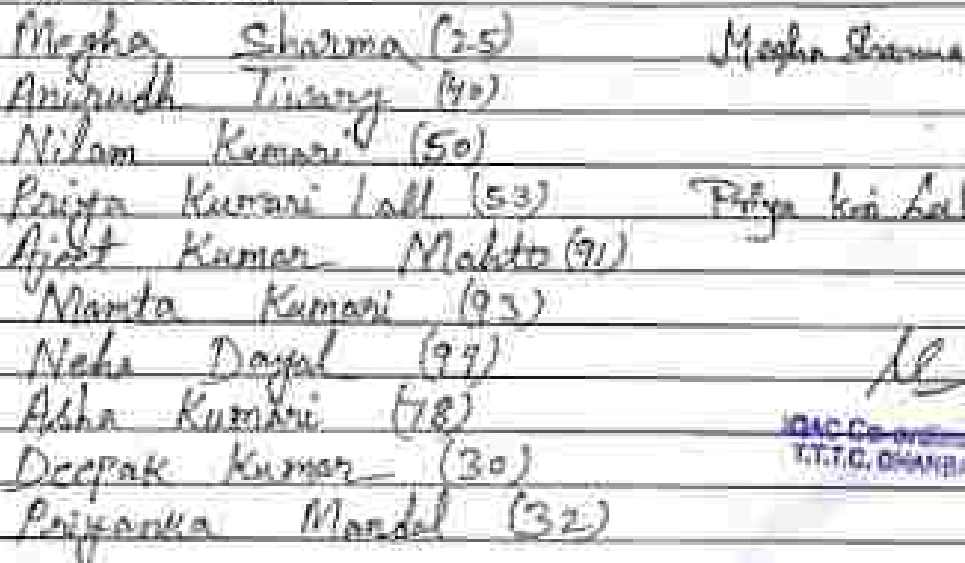 Megha Sharma (25) Megha Sharma
Anirudh Tiwary (40)
Nilam Kumari (50)
Priya Kumari Lall (53) Priya kri Lal
Ajeet Kumar Mahto (91)
Mamta Kumari (93)
Neha Dayal (97)
Asha Kumari (78)
Deepak Kumar (30)
Priyanka Mandal (32)
IQAC Co-ordin
T.T.T.C. DHANBA